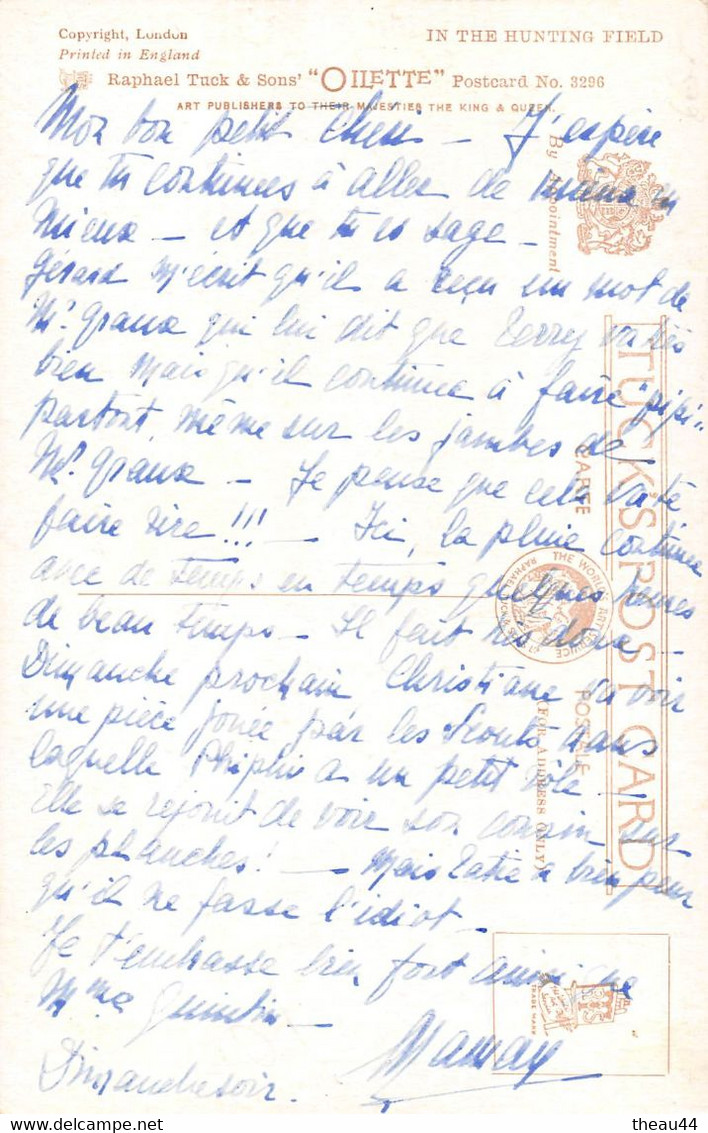 Copyright, London
IN THE HUNTING FIELD
Printed in England
Raphael Tuck & Sons' "OILETTE" Postcard No. 3296
ART PUBLISHERS TO THEIR MAJESTIES THE KING & QUEEN.
Mon bon petit Chéri — J'espère
que tu continues à aller de mieux en
Mieux — et que tu es sage —
Gérard m'écrit qu'il a reçu un mot de
Mr. Graux qui lui dit que Terry va très
bien mais qu'il continue à faire "pipi"
partout, même sur les jambes de
Mr. Graux — Je pense que cela va te
faire rire !!! — Ici, la pluie continue
avec de temps en temps quelques heures
de beau temps — Il fait très doux —
Dimanche prochain Christiane va voir
une pièce jouée par les Scouts dans
laquelle Phiphi a un petit rôle —
Elle se réjouit de voir son cousin sur
les planches ! — Mais a bien peur
qu'il ne fasse l'idiot —
Je t'embrasse bien fort ainsi que
Mme Quintin —
Maman
Dimanche soir.
By Appointment
TUCK'S POST CARD
CARTE POSTALE
(FOR ADDRESS ONLY)
THE WORLD'S ART SERVICE
RAPHAEL TUCK
TRADE MARK
theau44